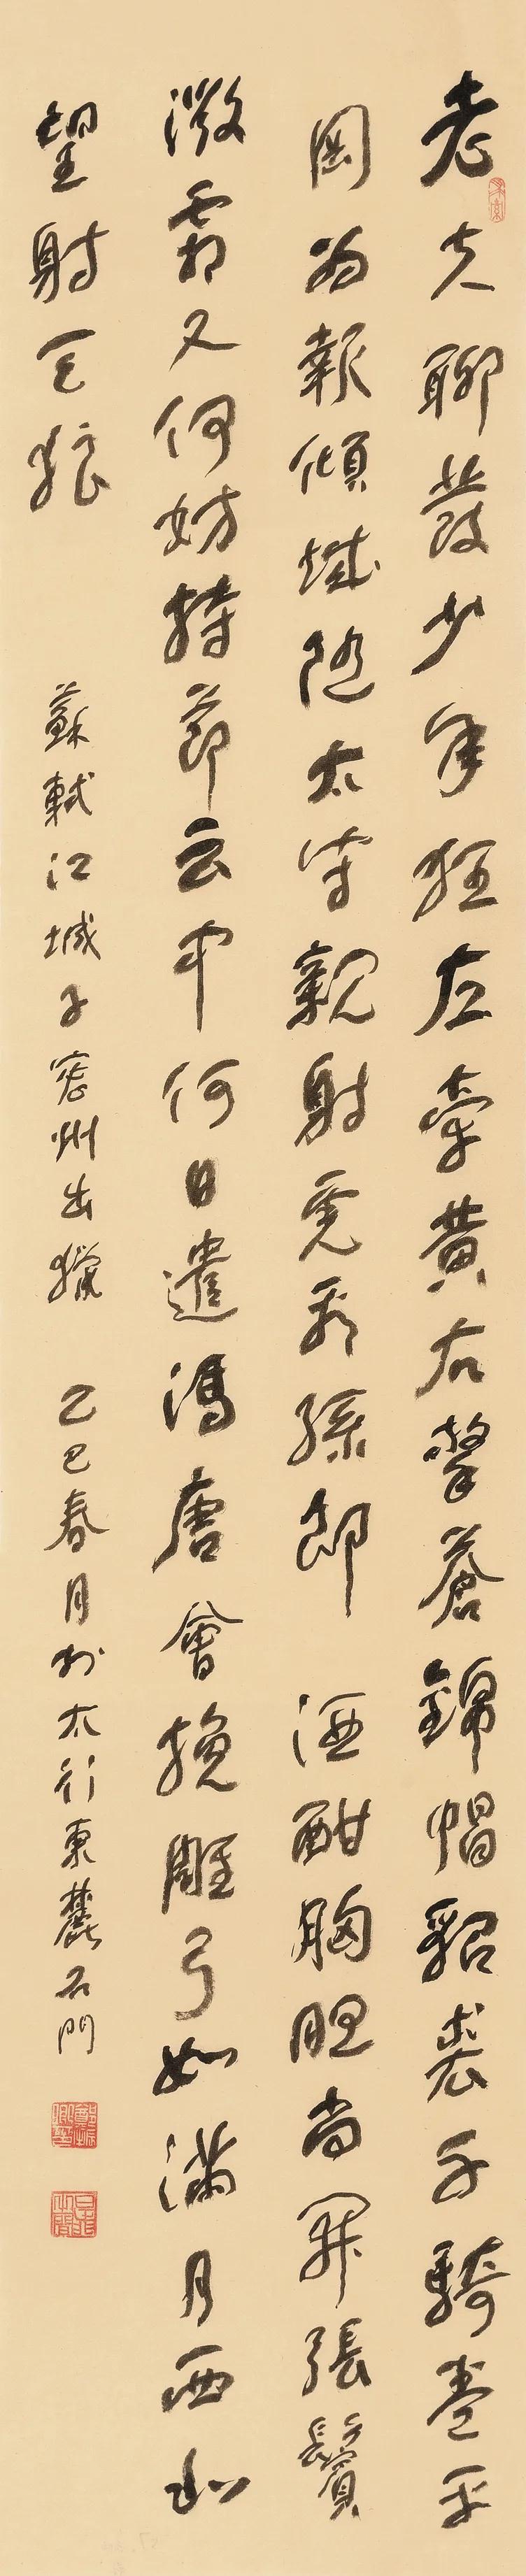 老夫聊發少年狂左牽黄右擎蒼錦帽貂裘千騎卷平
岡为報傾城随太守親射虎看孫郎 酒酣胸胆尚開張鬢
微霜又何妨持節云中何日遣馮唐會挽雕弓如滿月西北
望射天狼
蘇軾江城子密州出獵 乙巳春月於太行東麓石門